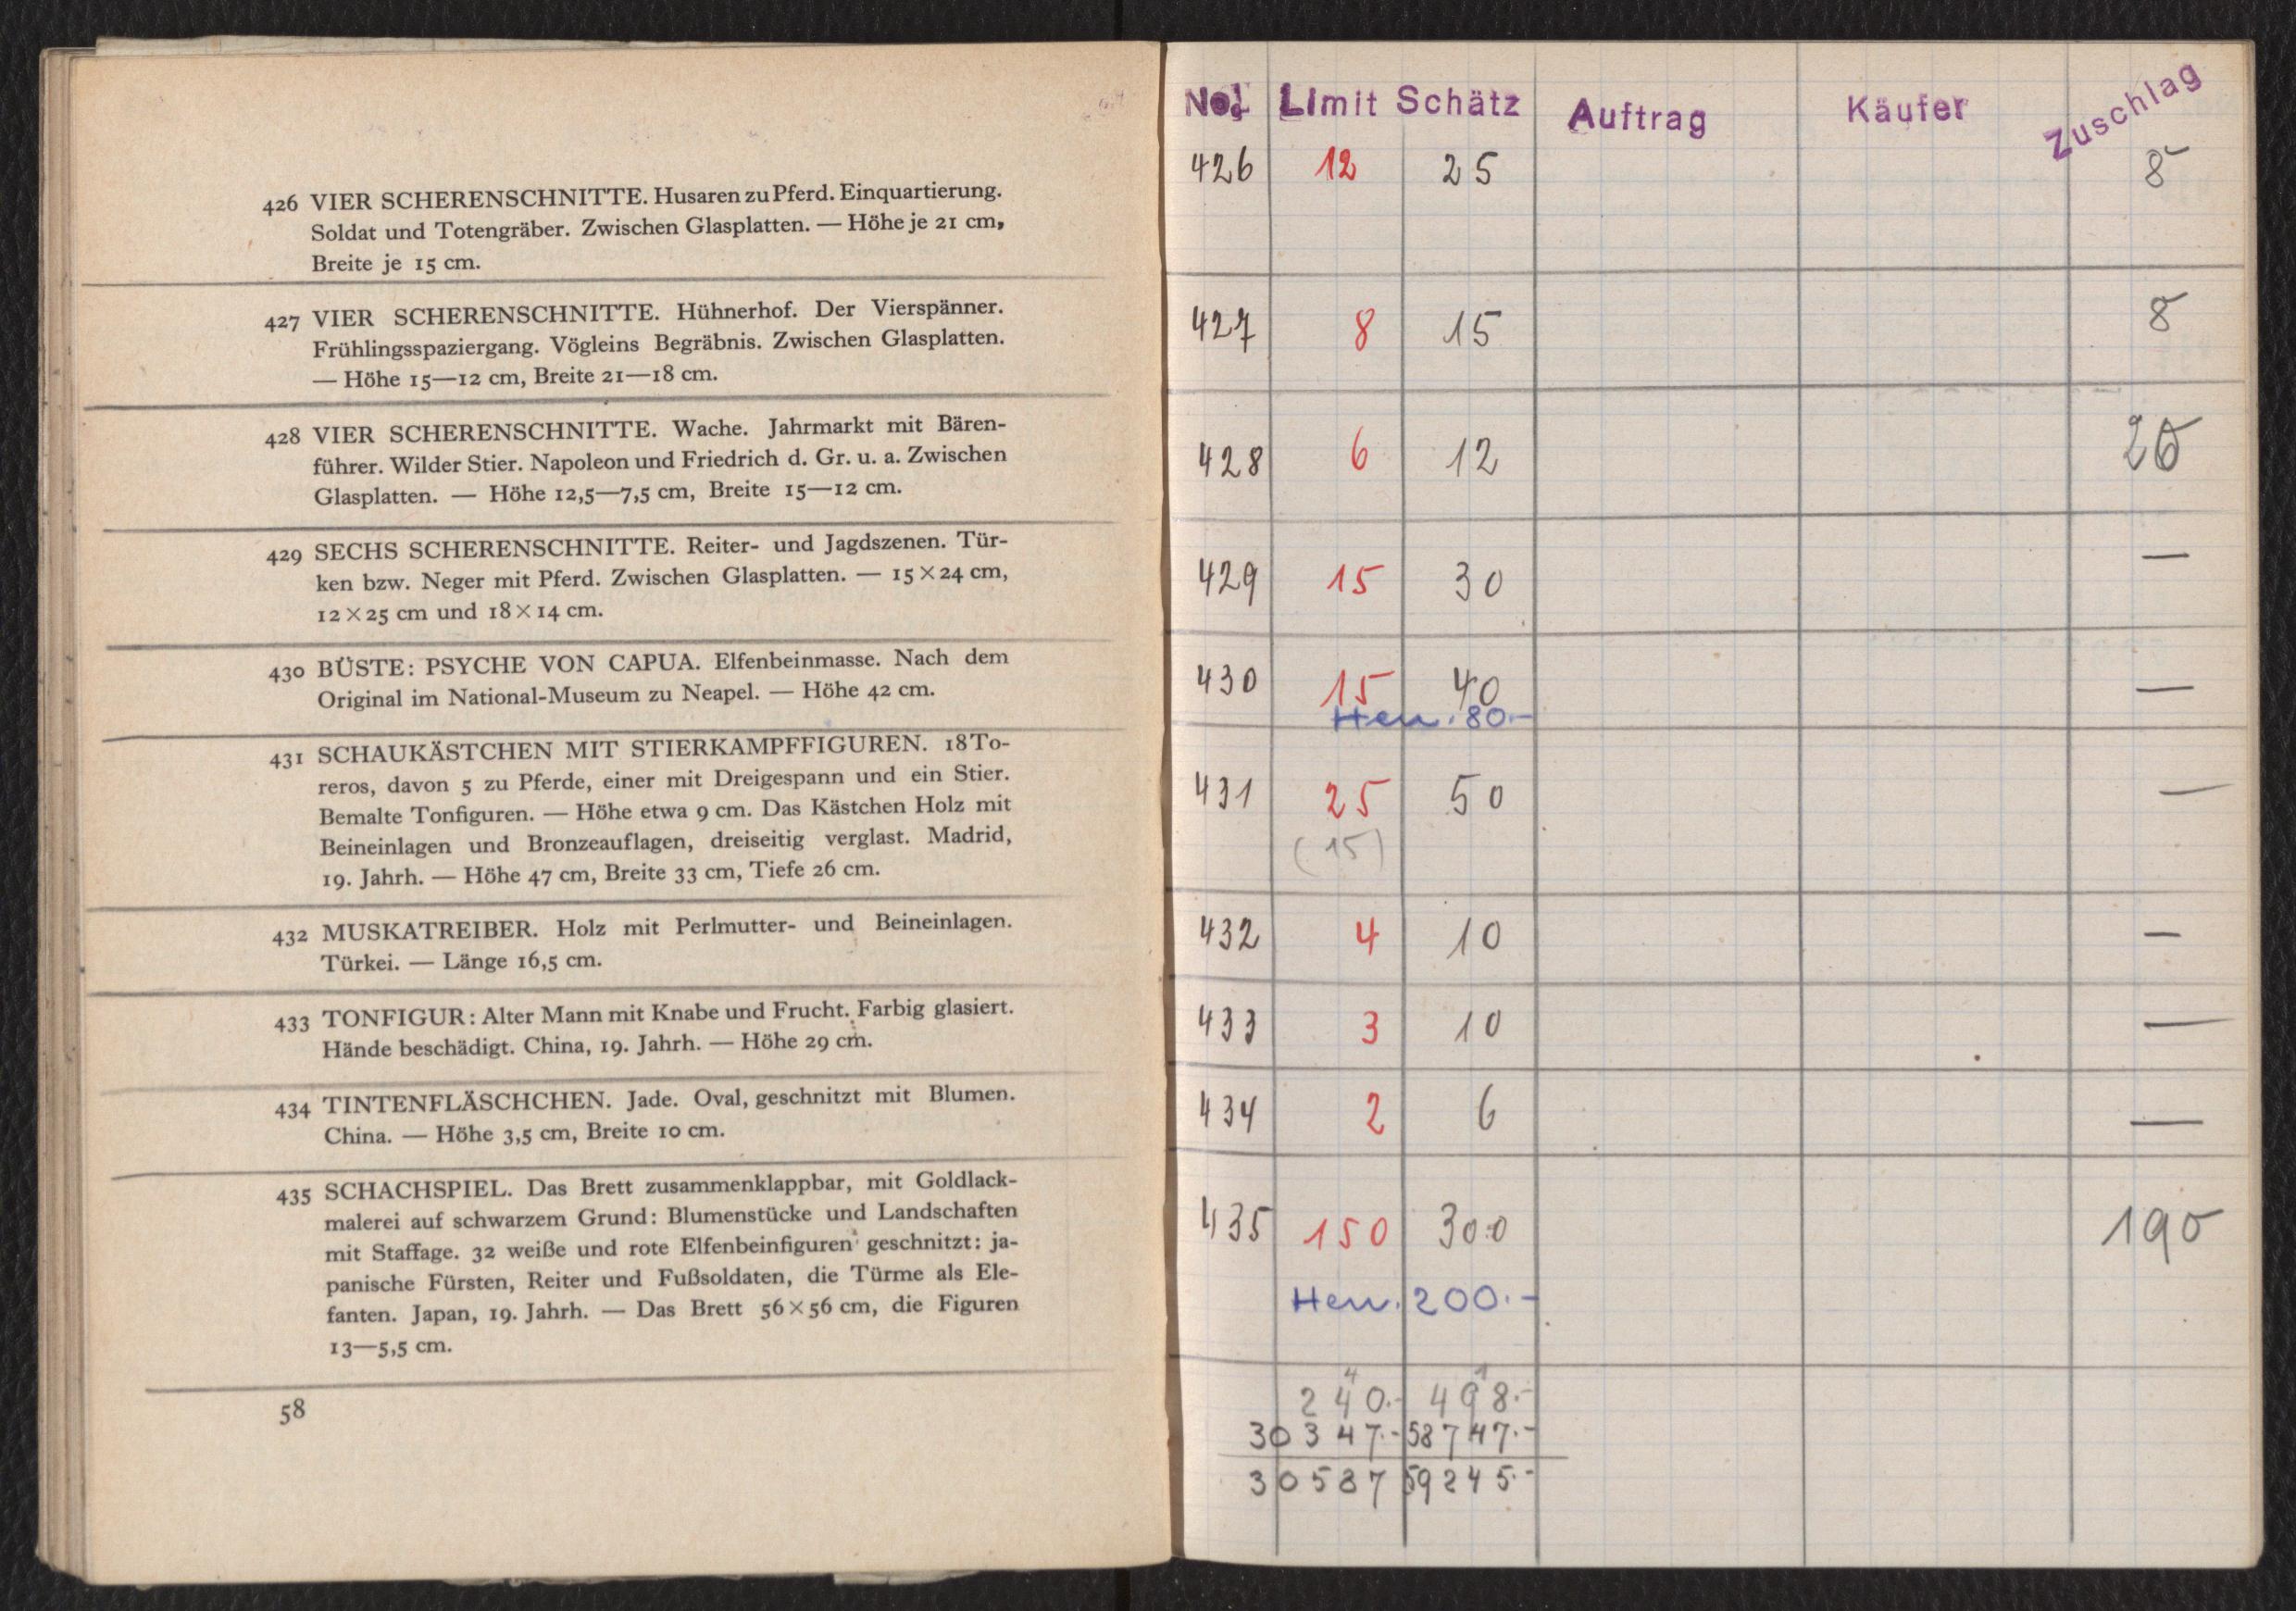 426 VIER SCHERENSCHNITTE. Husaren zu Pferd. Einquartierung.
Soldat und Totengräber. Zwischen Glasplatten. — Höhe je 21 cm,
Breite je 15 cm.
427 VIER SCHERENSCHNITTE. Hühnerhof. Der Vierspänner.
Frühlingsspaziergang. Vögleins Begräbnis. Zwischen Glasplatten.
— Höhe 15—12 cm, Breite 21—18 cm.
428 VIER SCHERENSCHNITTE. Wache. Jahrmarkt mit Bären-
führer. Wilder Stier. Napoleon und Friedrich d. Gr. u. a. Zwischen
Glasplatten. — Höhe 12,5—7,5 cm, Breite 15—12 cm.
429 SECHS SCHERENSCHNITTE. Reiter- und Jagdszenen. Tür-
ken bzw. Neger mit Pferd. Zwischen Glasplatten. — 15×24 cm,
12×25 cm und 18×14 cm.
430 BÜSTE: PSYCHE VON CAPUA. Elfenbeinmasse. Nach dem
Original im National-Museum zu Neapel. — Höhe 42 cm.
431 SCHAUKÄSTCHEN MIT STIERKAMPFFIGUREN. 18 To-
reros, davon 5 zu Pferde, einer mit Dreigespann und ein Stier.
Bemalte Tonfiguren. — Höhe etwa 9 cm. Das Kästchen Holz mit
Beineinlagen und Bronzeauflagen, dreiseitig verglast. Madrid,
19. Jahrh. — Höhe 47 cm, Breite 33 cm, Tiefe 26 cm.
432 MUSKATREIBER. Holz mit Perlmutter- und Beineinlagen.
Türkei. — Länge 16,5 cm.
433 TONFIGUR: Alter Mann mit Knabe und Frucht. Farbig glasiert.
Hände beschädigt. China, 19. Jahrh. — Höhe 29 cm.
434 TINTENFLÄSCHCHEN. Jade. Oval, geschnitzt mit Blumen.
China. — Höhe 3,5 cm, Breite 10 cm.
435 SCHACHSPIEL. Das Brett zusammenklappbar, mit Goldlack-
malerei auf schwarzem Grund: Blumenstücke und Landschaften
mit Staffage. 32 weiße und rote Elfenbeinfiguren geschnitzt: ja-
panische Fürsten, Reiter und Fußsoldaten, die Türme als Ele-
fanten. Japan, 19. Jahrh. — Das Brett 56×56 cm, die Figuren
13—5,5 cm.
58
No. Limit Schätz Auftrag Käufer Zuschlag
426 12 25 8-
427 8 15 8
428 6 12 26
429 15 30 —
430 15 40 —
Hen. 80.-
431 25 50 —
(15)
432 4 10 —
433 3 10 —
434 2 6 —
435 150 300 190
Hen. 200.-
240.- 498.-
30347.- 58747.-
30587 59245.-